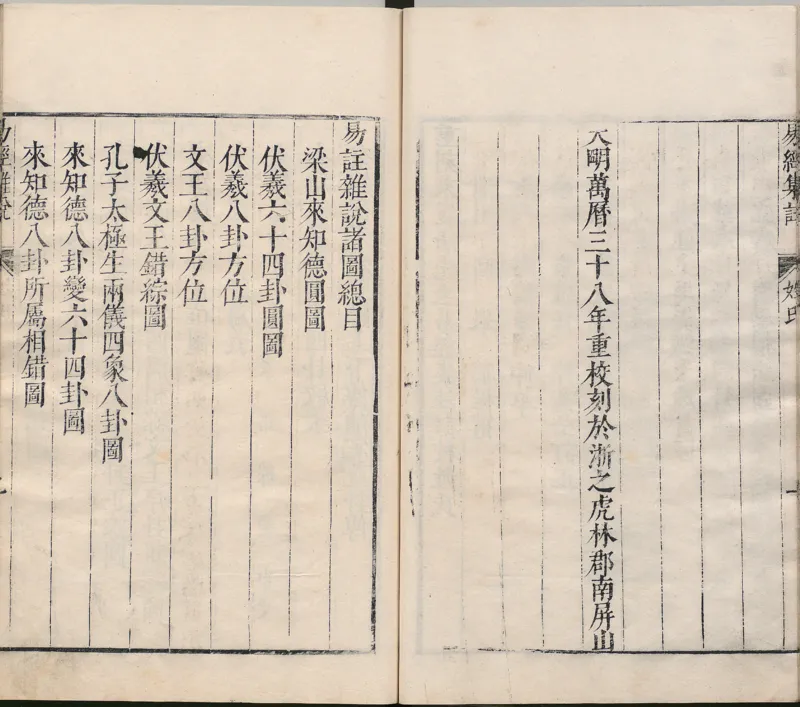 易經集註
姓氏
大明萬曆三十八年重校刻於浙之虎林郡南屏山
易註雜說諸圖總目
梁山來知德圓圖
伏羲六十四卦圓圖
伏羲八卦方位
文王八卦方位
伏羲文王錯綜圖
孔子太極生兩儀四象八卦圖
來知德八卦變六十四卦圖
來知德八卦所屬相錯圖
易經雜說